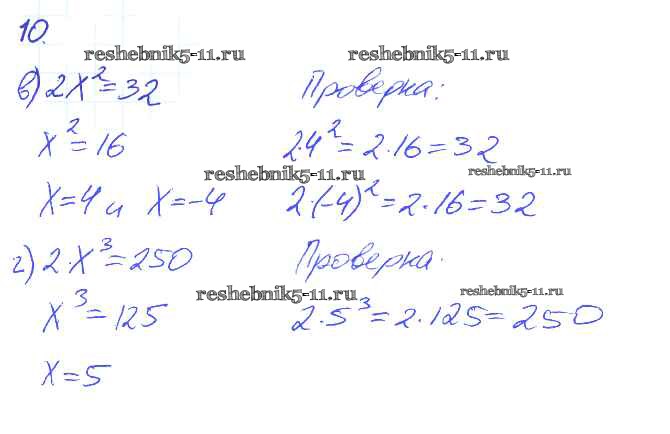 10.
reshebnik5-11.ru reshebnik5-11.ru
в) 2x² = 32 Проверка:
x² = 16 2·4² = 2·16 = 32
reshebnik5-11.ru reshebnik5-11.ru
x = 4 и x = -4 2·(-4)² = 2·16 = 32
г) 2·x³ = 250 Проверка.
reshebnik5-11.ru reshebnik5-11.ru
x³ = 125 2·5³ = 2·125 = 250
x = 5